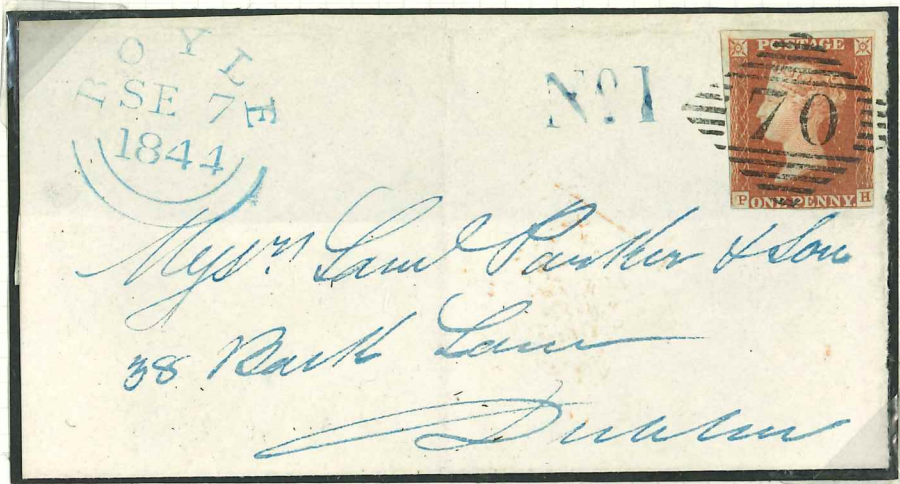 BOYLE
SE 7
1844
No. 1
POSTAGE
70
P ONE PENNY. H
Messrs Saml Parker & Son
38 Back Lane
Dublin